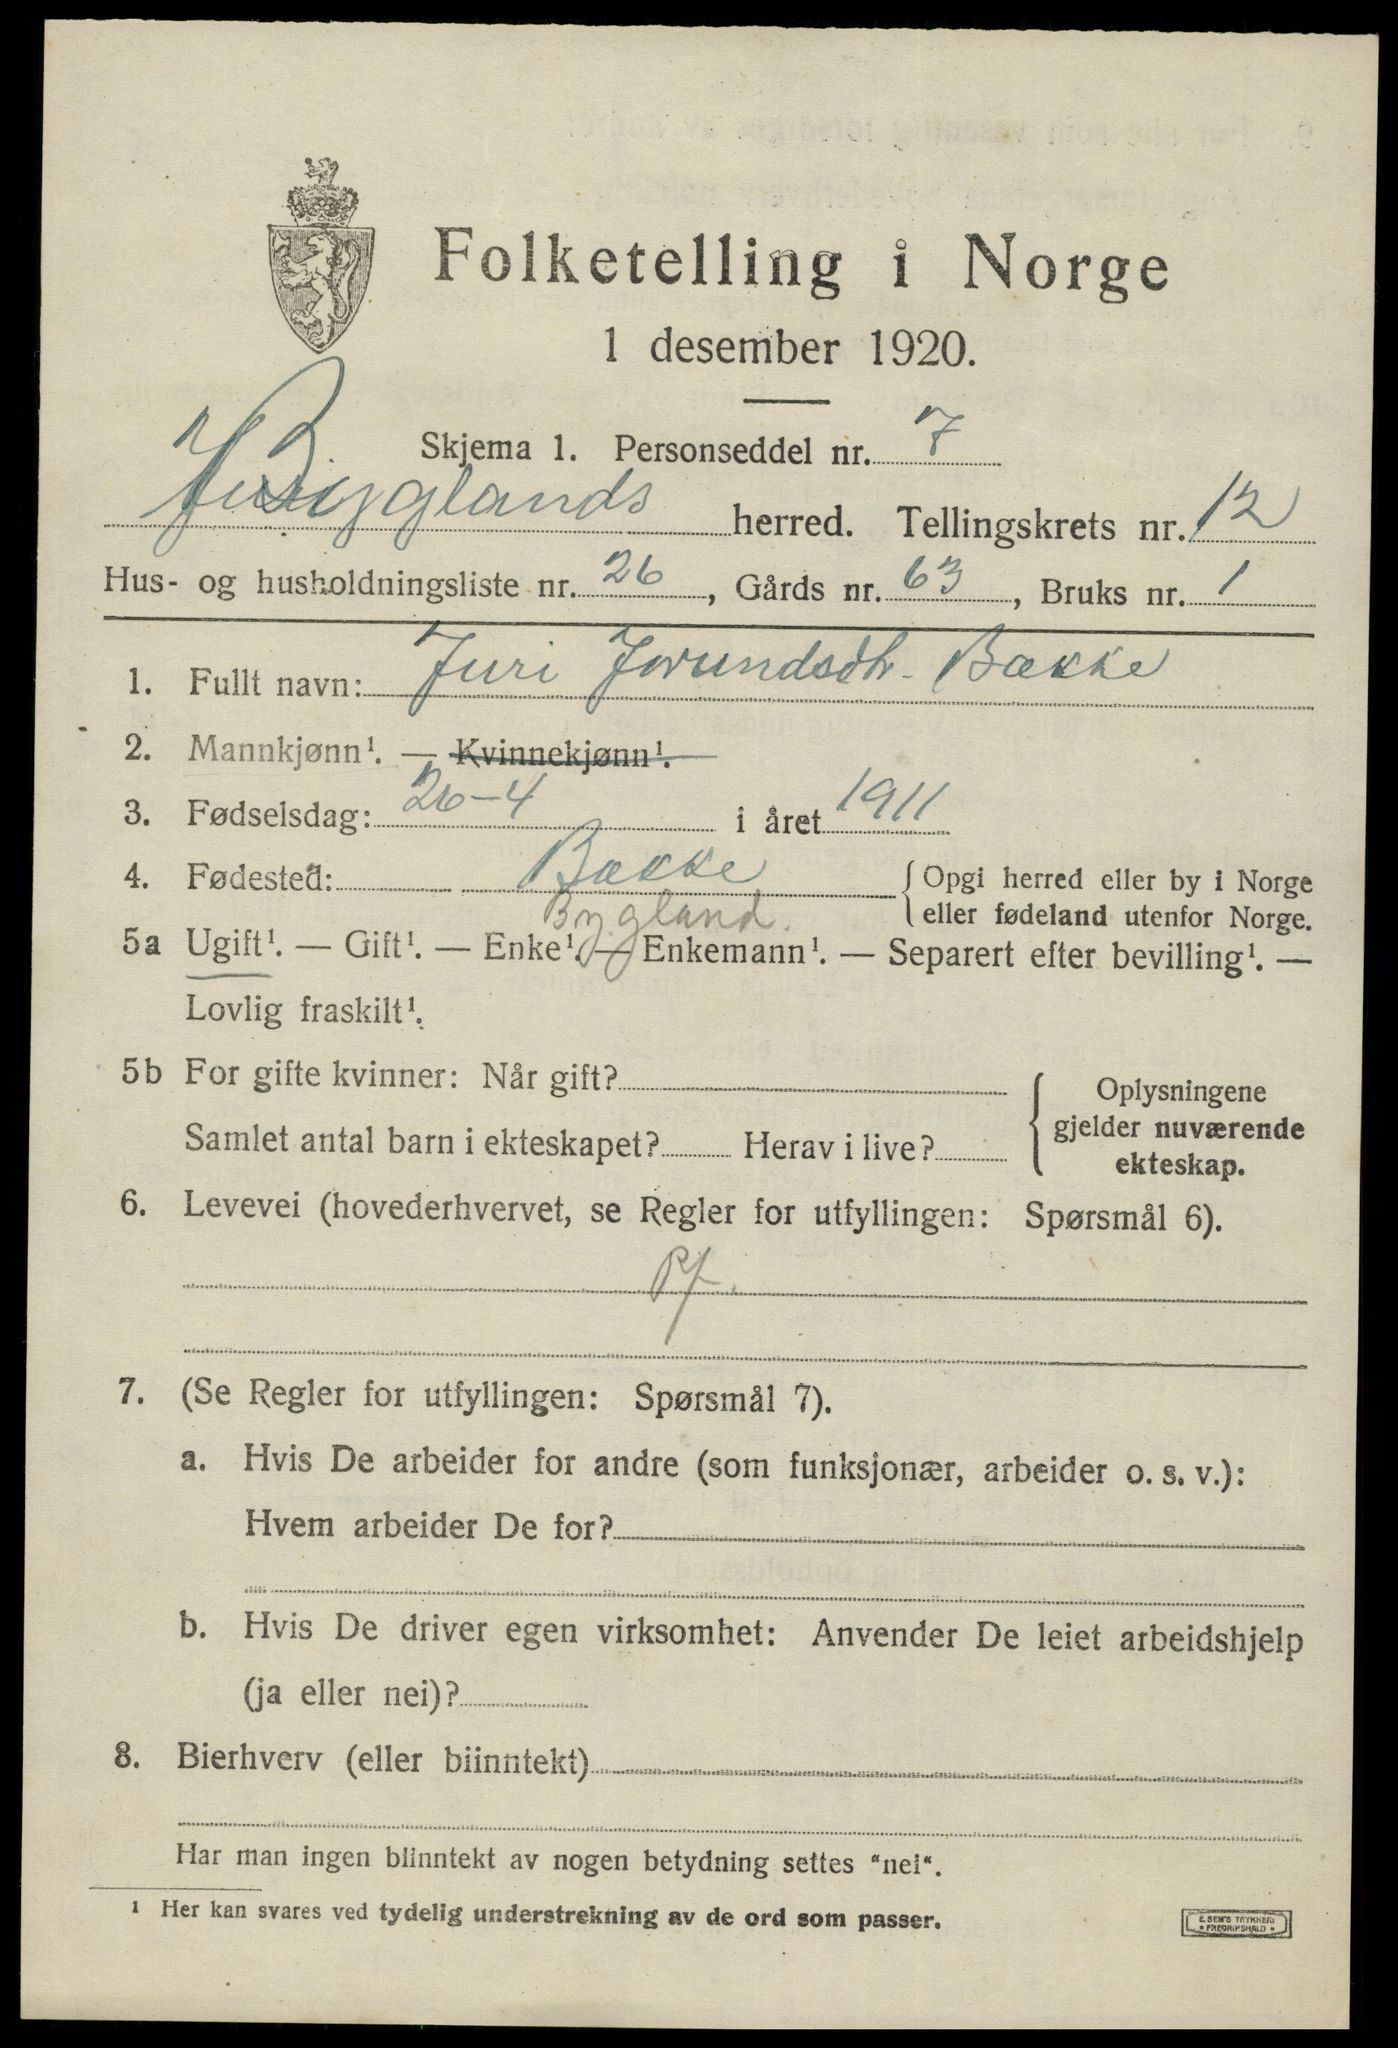 Folketelling i Norge
1 desember 1920.
Skjema 1. Personseddel nr. 7
Byglands herred. Tellingskrets nr. 12
Hus- og husholdningsliste nr. 26, Gårds nr. 63, Bruks nr. 1
1. Fullt navn: Juri Jorundsdtr. Bakke
2. Mannkjønn¹. — Kvinnekjønn¹.
3. Fødselsdag: 26-4 i året 1911
4. Fødested: Bakke {Opgi herred eller by i Norge
Bygland. eller fødeland utenfor Norge.
5a Ugift¹. — Gift¹. — Enke¹. — Enkemann¹. — Separert efter bevilling¹. —
Lovlig fraskilt¹.
5b For gifte kvinner: Når gift? Oplysningene
Samlet antal barn i ekteskapet? Herav i live? gjelder nuværende
ekteskap.
6. Levevei (hovederhvervet, se Regler for utfyllingen: Spørsmål 6).
Pf.
7. (Se Regler for utfyllingen: Spørsmål 7).
a. Hvis De arbeider for andre (som funksjonær, arbeider o. s. v.):
Hvem arbeider De for?
b. Hvis De driver egen virksomhet: Anvender De leiet arbeidshjelp
(ja eller nei)?
8. Bierhverv (eller biinntekt)
Har man ingen biinntekt av nogen betydning settes "nei".
1 Her kan svares ved tydelig understrekning av de ord som passer.
E. SEM'S TRYKKERI
* FREDRIKSHALD *